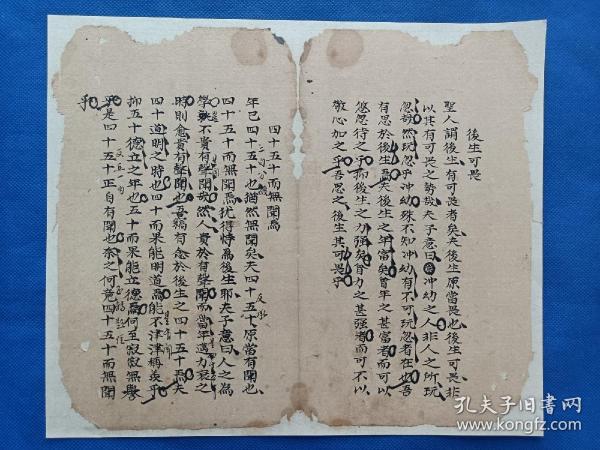 後生可畏
聖人謂後生有可畏者矣夫後生原當畏也後生可畏非
以其有可畏之勢哉夫子意曰沖幼之人非人之所玩
忽哉然玩忽乎沖幼殊不知沖幼有不可玩忽者在也吾
有思於後生焉夫後生之年富矣曾年之甚富者而可以
悠忽待之乎抑後生之力強矣曾力之甚強者而可不以
敬心加之乎吾思之後生其可畏乎
四十五十而無聞焉
年已四十五十也猶然無聞矣夫四十五十原當有聞也
四十五十而無聞焉猶得恃為後生耶夫子意曰人之為
學不貴有聲聞哉然人貴於有聲聞而當年邁力衰之
時則愈貴有聲聞也吾竊有念於後生之四十五十焉夫
四十道明之時也四十而果能明道焉能不津津稱羨乎
抑五十德立之年也五十而果能立德焉何至寂寂無譽
乎是四十五十正自有聞也奈之何竟四十五十而無聞
乎
孔夫子旧书网
www.kongfz.com